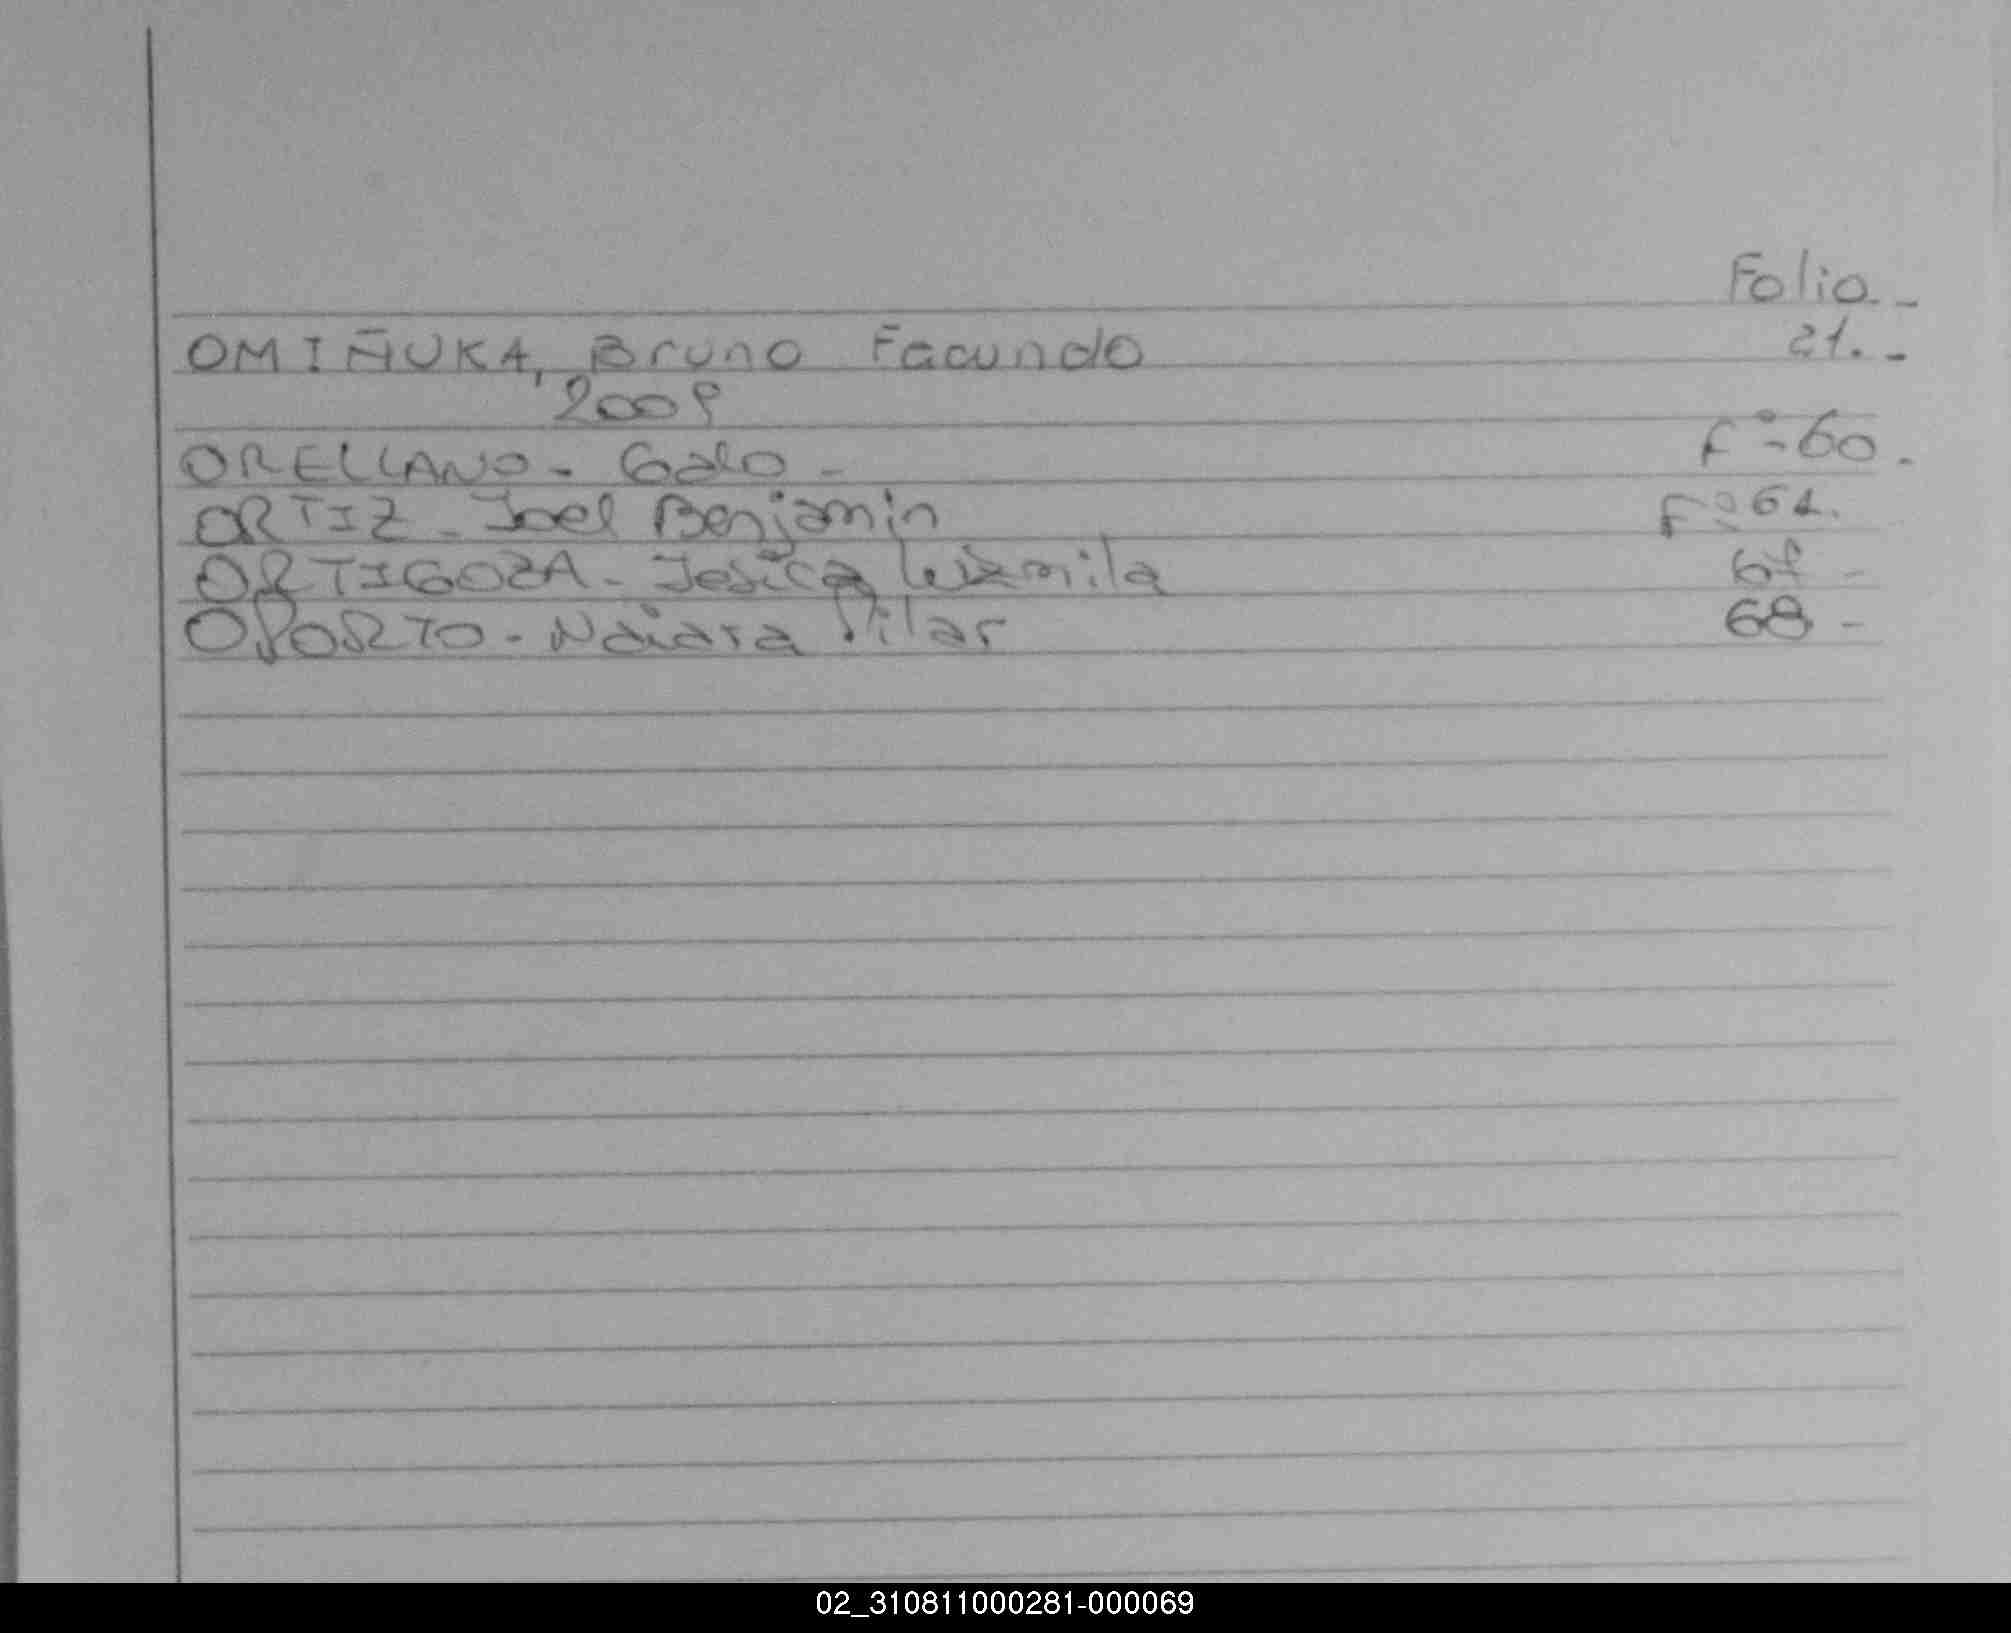 Folio.-
OMIÑUKA, Bruno Facundo 21.-
2009
ORELLANO - Galo - Fº-60.
ORTIZ - Joel Benjamin Fº 61.
ORTIGOZA - Jesica -
OPORTO - Naiara Pilar 68 -
02_310811000281-000069